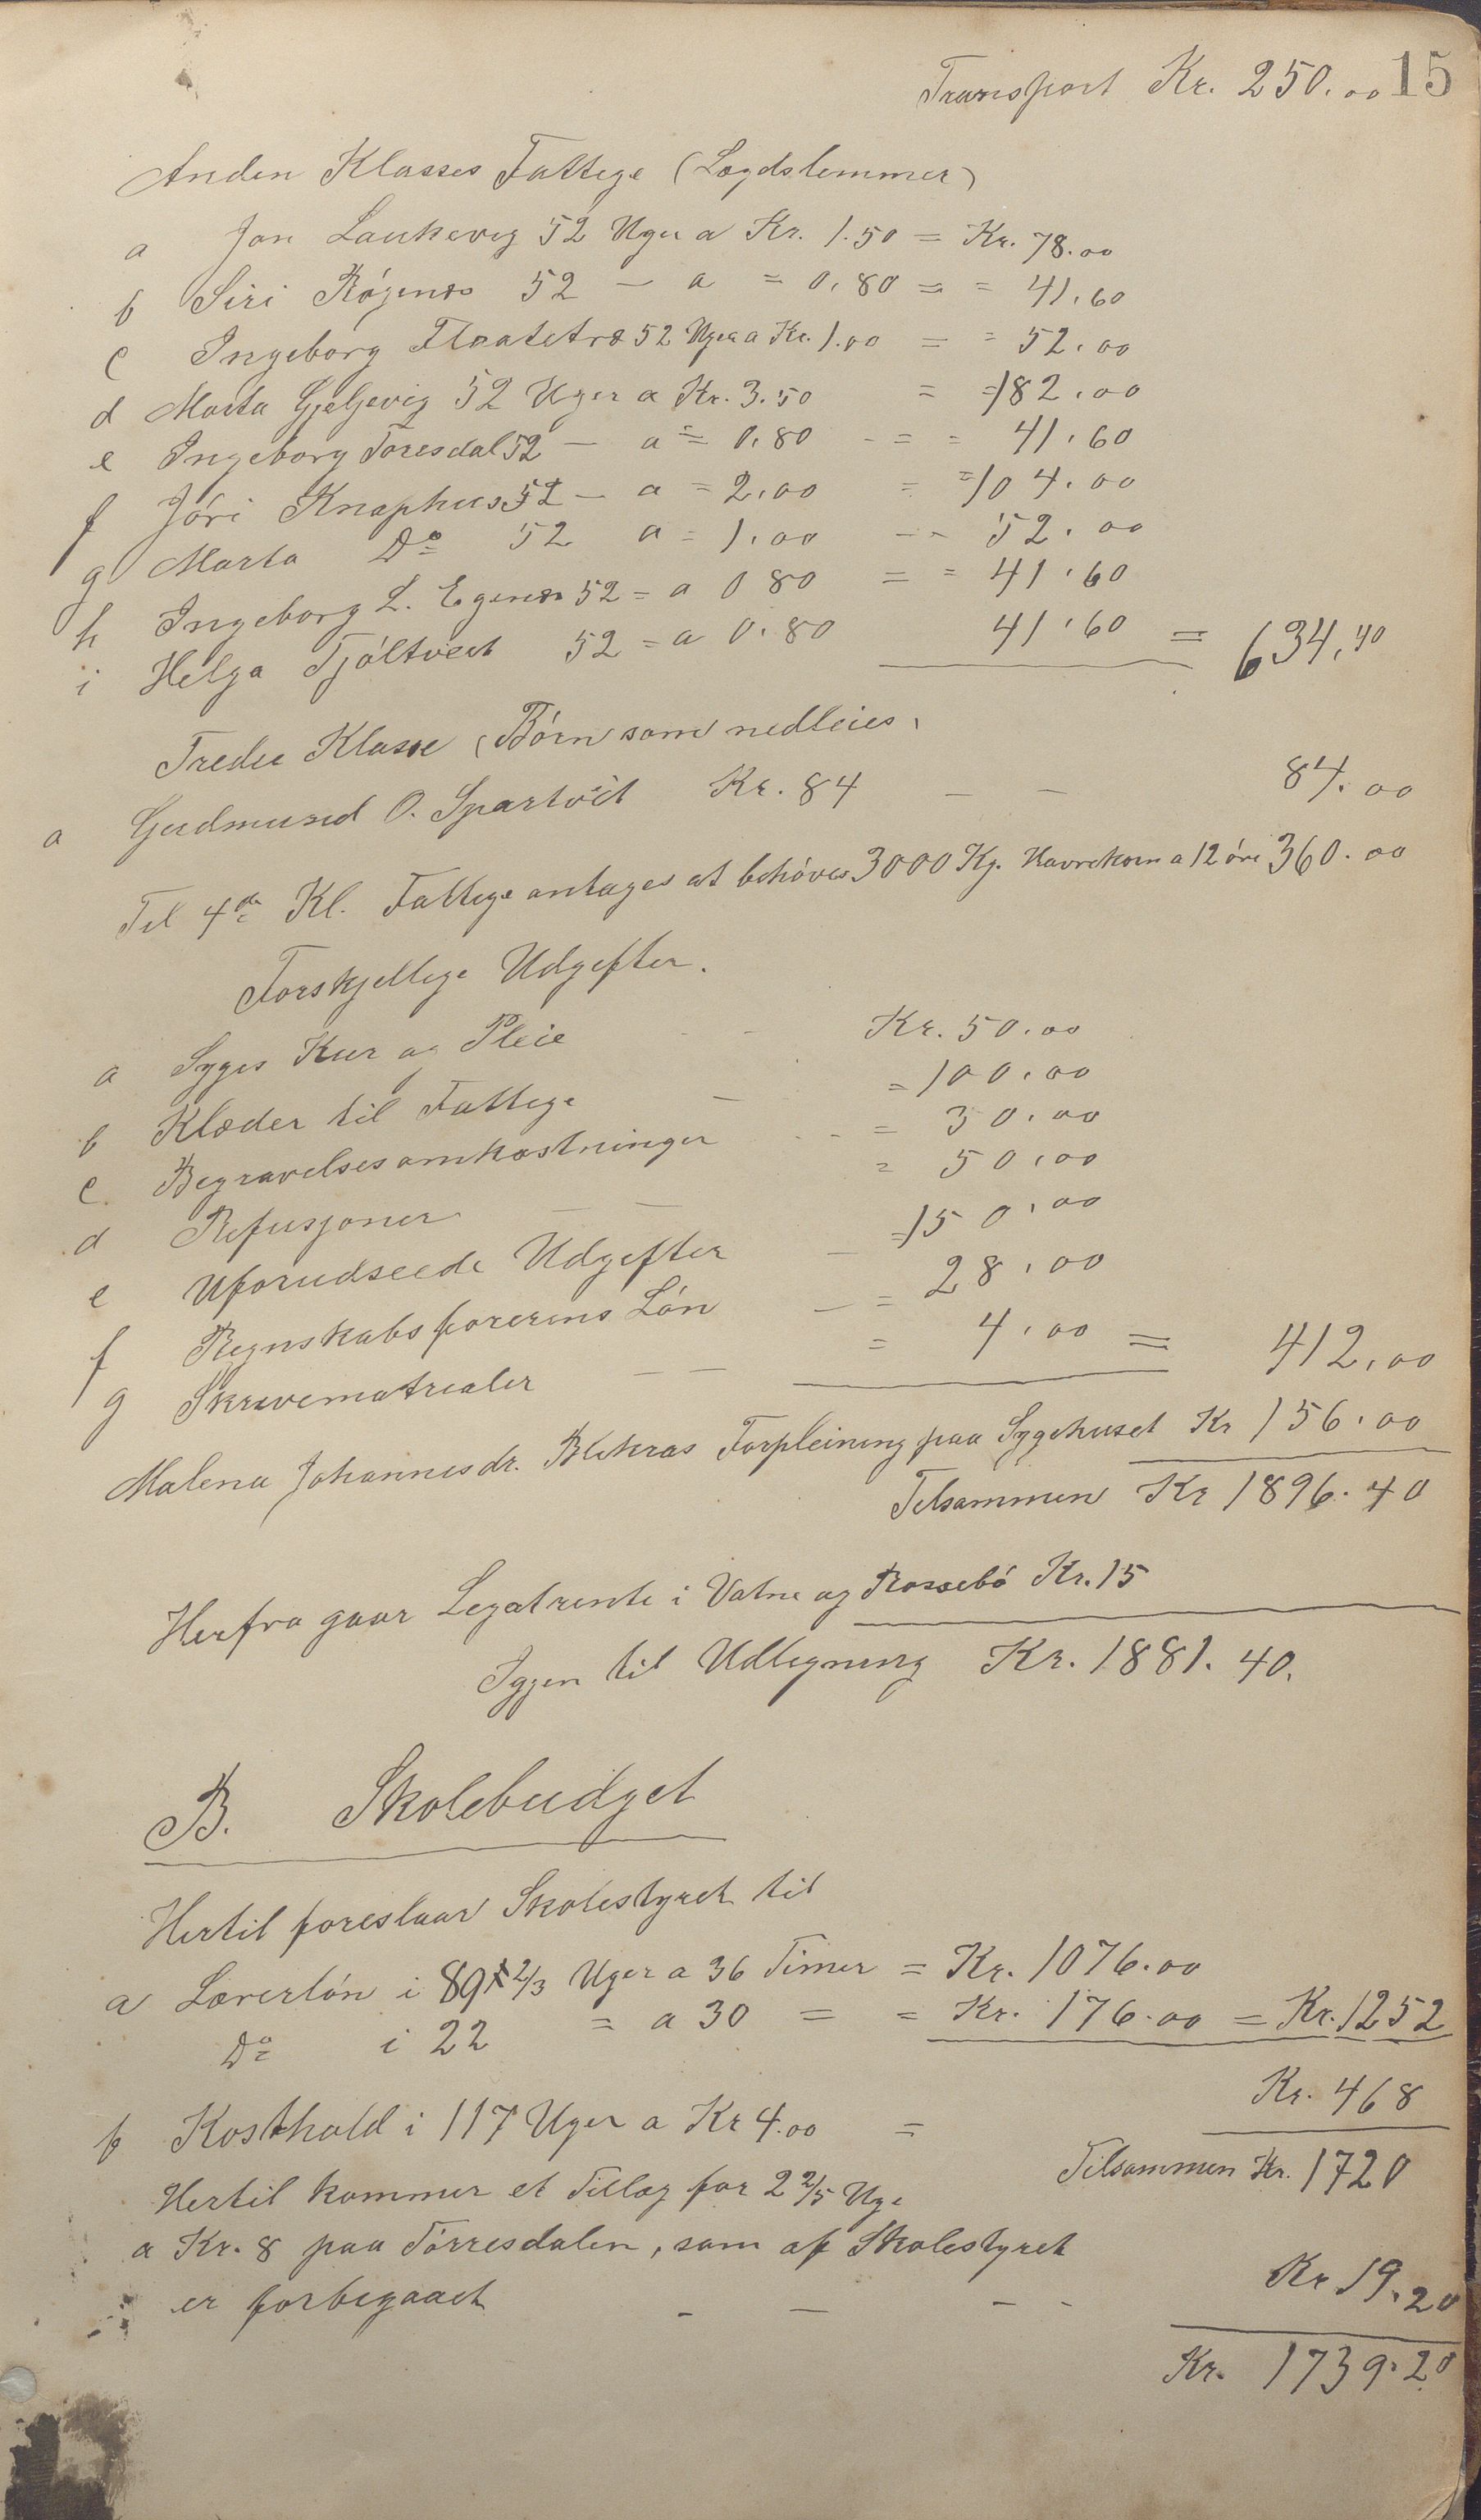 Transport Kr. 250.00 15
Anden Klasses Fattige (Lægdslemmer)
a Jon Laukevig 52 Uger a Kr. 1.50 = Kr. 78.00
b Siri Røgenæs 52 — a = 0.80 = = 41.60
c Ingeborg Flaatetræ 52 Uger a Kr. 1.00 = = 52.00
d Marta Gjeljevig 52 Uger a Kr. 3.50 = = 182.00
e Ingeborg Toresdal 52 — a = 0.80 - = = 41.60
f Jóri Knaphus 52 — a = 2.00 = = 104.00
g Marta Do 52 a = 1.00 - - 52.00
h Ingeborg L. Egenæs 52 = a 0 80 = = 41.60
i Helga Tjóltveit 52 = a 0.80 41.60 = 634.40
Tredie Klasse (Børn som nedleies)
a Gudmund O. Spartveit Kr. 84 — — 84.00
Til 4de Kl. Fattige antages at behóves 3000 Kg. Havrekorn a 12 óre 360.00
Forskjellige Udgifter.
a Syges Kur og Pleie - - Kr. 50.00
b Klæder til Fattige — = 100.00
c. Begravelsesomkostninger - - = 30.00
d Refusjoner — — = 50.00
e Uforudseede Udgifter — = 150.00
f Regnskabsførerens Lón — = 28.00
g Skrivematrialer — — = 4.00 = 412.00
Malena Johannesdr. Blikras Forpleining paa Sygehuset Kr 156.00
Tilsammen Kr 1896.40
Herfra gaar Legatrente i Vatne og Rossebó Kr. 15
Igjen til Udligning Kr. 1881.40.
B. Skolebudget
Hertil foreslaar Skolestyret til
a Lærerlón i 89 2/3 Uger a 36 Timer = Kr. 1076.00
Do i 22 = a 30 = = Kr. 176.00 = Kr. 1252
b Kosthold i 117 Uger a Kr 4.00 = Kr. 468
Tilsammen Kr. 1720
Hertil kommer et Tillæg for 2 2/5 Uge
a Kr. 8 paa Tórresdalen, som af Skolestyret
er forbigaaet — — — - Kr 19.20
Kr. 1739.20